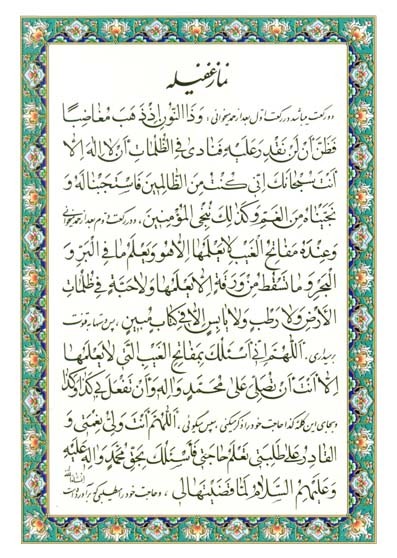 نماز غفیله
دو رکعت میباشد در رکعت اول بعد از حمد میخوانی: وَذَا النُّونِ اِذْ ذَهَبَ مُغَاضِبًا
فَظَنَّ اَنْ لَنْ نَقْدِرَ عَلَيْهِ فَنَادٰى فِى الظُّلُمَاتِ اَنْ لَا اِلٰهَ اِلَّا
اَنْتَ سُبْحَانَكَ اِنِّى كُنْتُ مِنَ الظَّالِمِينَ فَاسْتَجَبْنَا لَهُ وَ
نَجَّيْنَاهُ مِنَ الْغَمِّ وَكَذٰلِكَ نُنْجِى الْمُؤْمِنِينَ، و در رکعت دوم بعد از حمد میخوانی
وَعِنْدَهُ مَفَاتِحُ الْغَيْبِ لَا يَعْلَمُهَا اِلَّا هُوَ وَيَعْلَمُ مَا فِى الْبَرِّ وَ
الْبَحْرِ وَ مَا تَسْقُطُ مِنْ وَرَقَةٍ اِلَّا يَعْلَمُهَا وَلَا حَبَّةٍ فِى ظُلُمَاتِ
الْاَرْضِ وَلَا رَطْبٍ وَلَا يَابِسٍ اِلَّا فِى كِتَابٍ مُبِينٍ، پس دستها را بقنوت
برمیداری، اَللّٰهُمَّ اِنِّى اَسْئَلُكَ بِمَفَاتِحِ الْغَيْبِ الَّتِى لَا يَعْلَمُهَا
اِلَّا اَنْتَ اَنْ تُصَلِّىَ عَلٰى مُحَمَّدٍ وَ اٰلِهِ وَ اَنْ تَفْعَلَ بِى كَذَا وَكَذَا
و بجای این کلمه کذا حاجت خود را ذکر میکنی، سپس میگوئی، اَللّٰهُمَّ اَنْتَ وَلِىُّ نِعْمَتِى وَ
الْقَادِرُ عَلٰى طَلِبَتِى تَعْلَمُ حَاجَتِى فَاَسْئَلُكَ بِحَقِّ مُحَمَّدٍ وَ اٰلِهِ عَلَيْهِ
وَ عَلَيْهِمُ السَّلَامُ لَمَّا قَضَيْتَهَا لِى، و حاجت خود را میطلبی که برآورده است